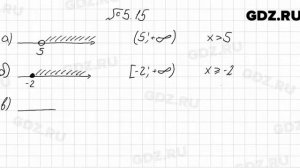 GDZ.RU
№5.15
а) 5 (5; +∞) x>5
б) -2 [-2; +∞) x⩾-2
в)